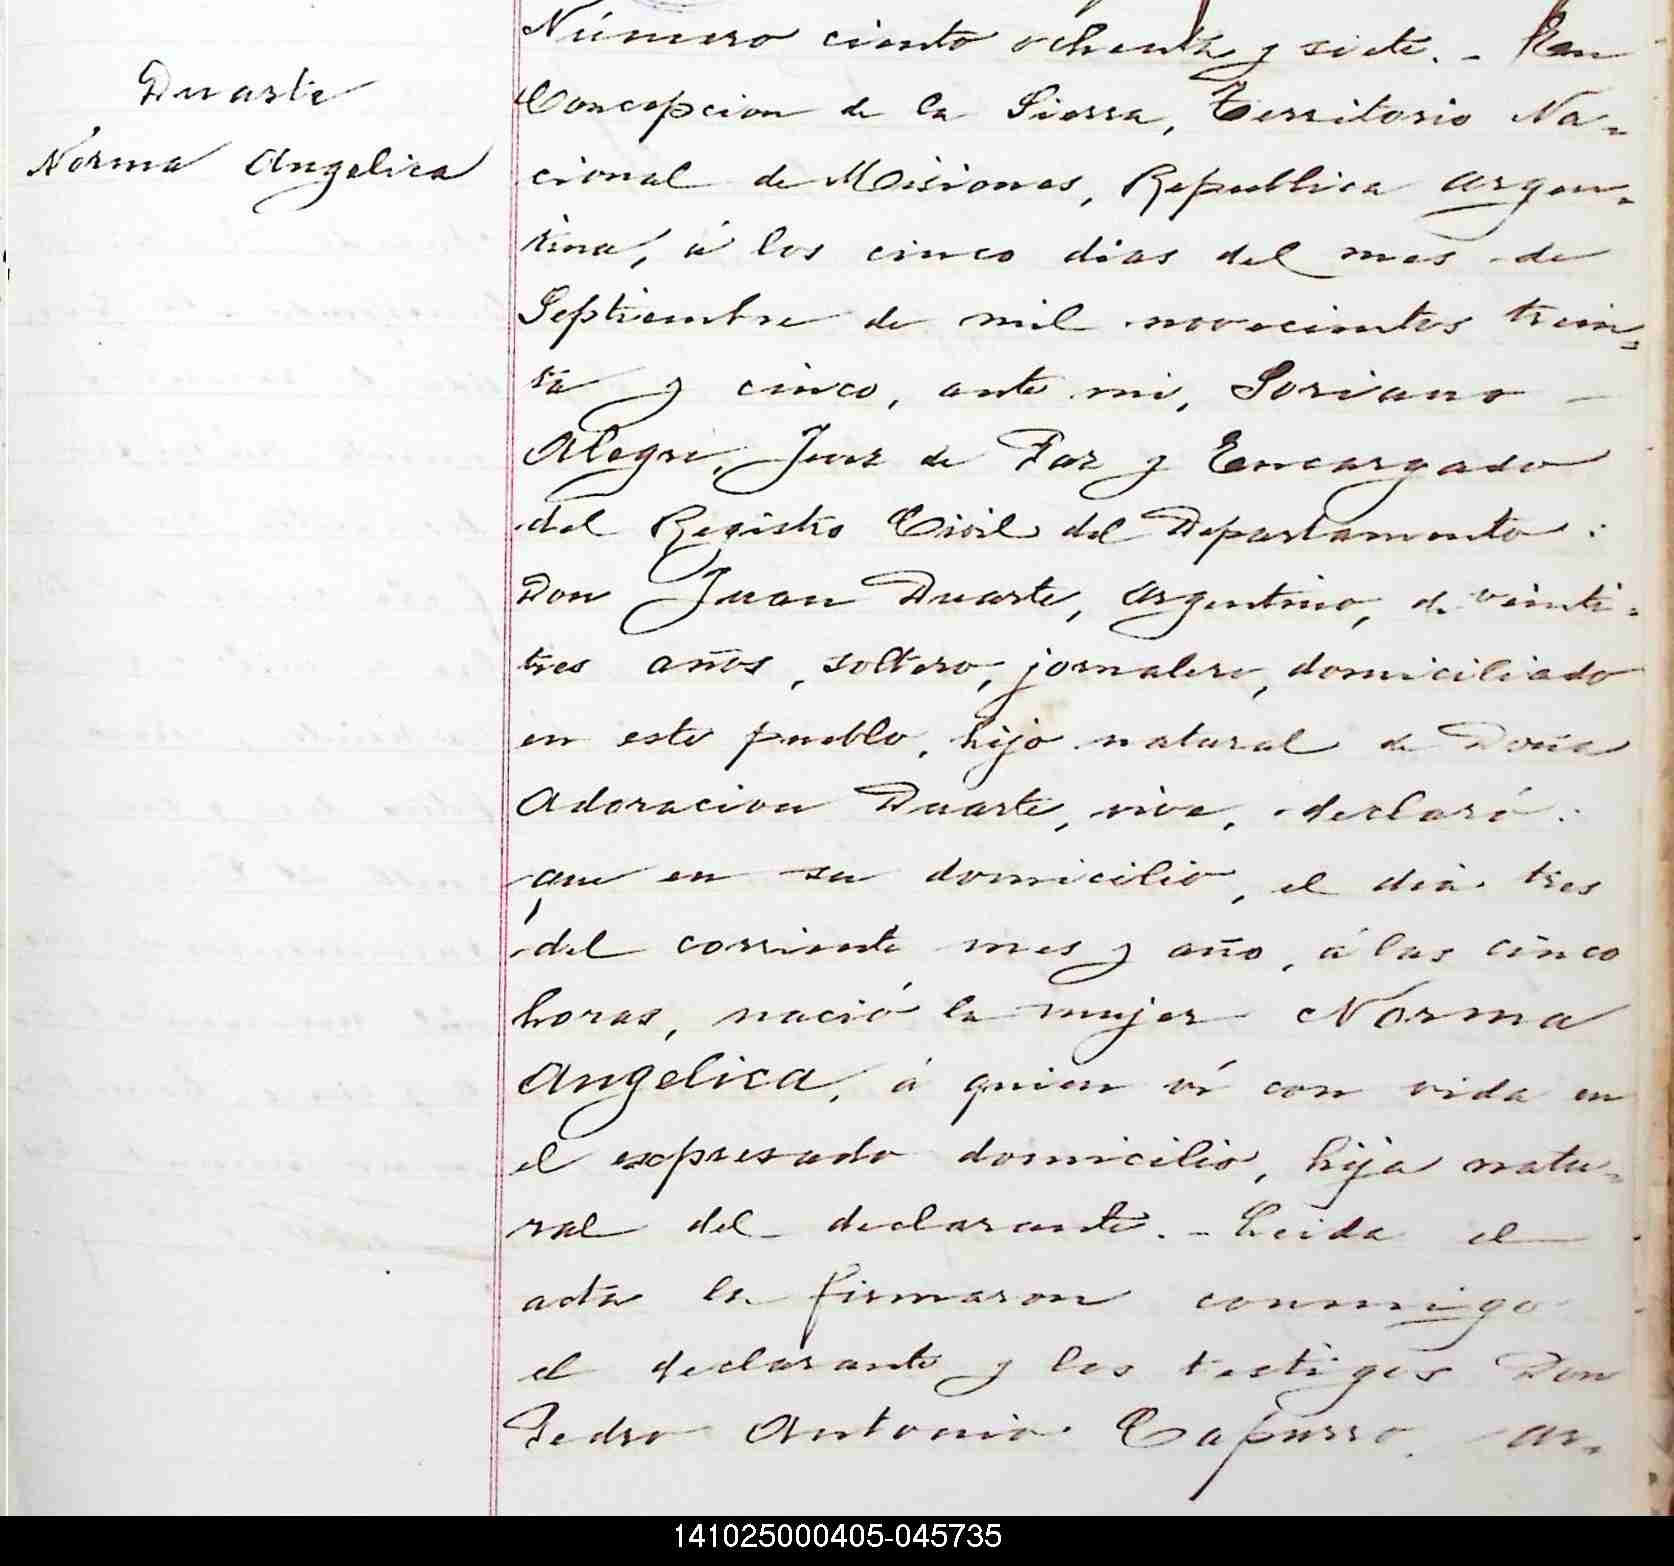 Duarte
Norma Angelica
Número ciento ochenta y siete. - En
Concepcion de la Sierra, Territorio Na-
cional de Misiones, Republica Argen-
tina, á los cinco dias del mes de
Septiembre de mil novecientos trein-
ta y cinco, ante mi, Soriano -
Alegre, Juez de Paz y Encargado
del Registro Civil del Departamento:
Don Juan Duarte, Argentino, de veinti-
tres años, soltero, jornalero, domiciliado
en este pueblo, hijo natural de Doña
Adoracion Duarte, vive, declaró:
que en su domicilio, el dia tres
del corriente mes y año, á las cinco
horas, nació la mujer Norma
Angelica, á quien ví con vida en
el expresado domicilio, hija natu-
ral del declarante. - Leida el
acta la firmaron conmigo
el declarante y los testigos Don
Pedro Antonio Capurro, Ar-
141025000405-045735